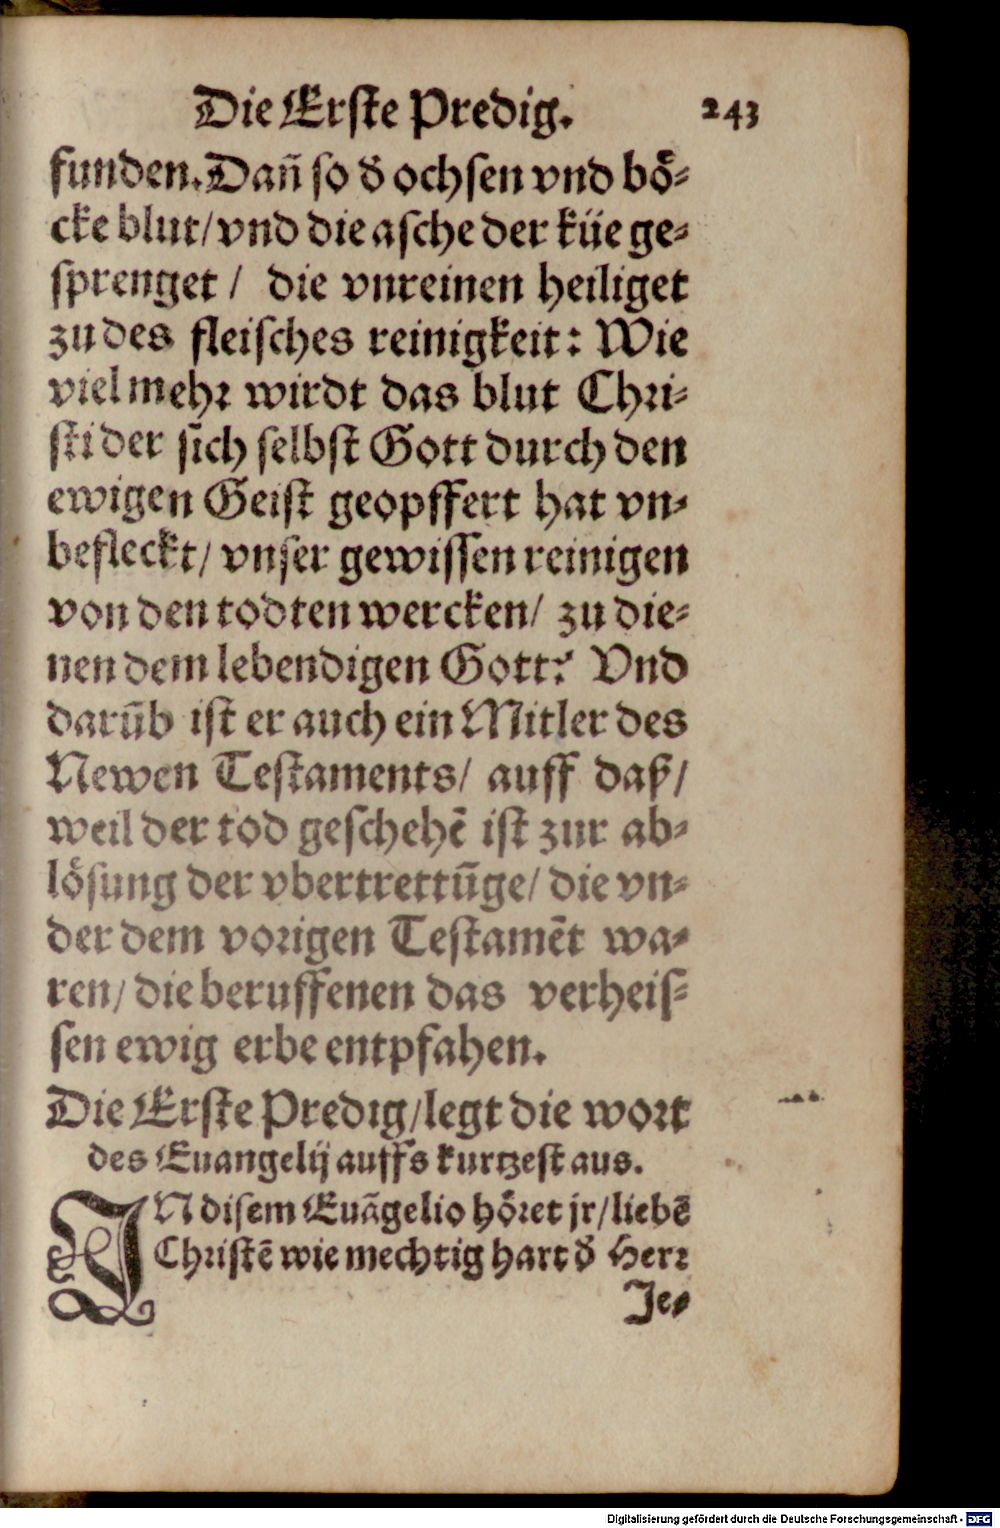 Die Erste Predig. 243
funden. Dañ so ď ochsen vnd boͤ-
cke blut/ vnd die asche der küe ge-
sprenget / die vnreinen heiliget
zu des fleisches reinigkeit: Wie
viel mehr wirdt das blut Chri-
sti der sich selbst Gott durch den
ewigen Geist geopffert hat vn-
befleckt/ vnser gewissen reinigen
von den todten wercken/ zu die-
nen dem lebendigen Gott? Vnd
darũb ist er auch ein Mitler des
Newen Testaments/ auff daß/
weil der tod geschehẽ ist zur ab-
loͤsung der vbertrettũge/ die vn-
der dem vorigen Testamẽt wa-
ren/ die beruffenen das verheis-
sen ewig erbe entpfahen.
Die Erste Predig/ legt die wort
des Euangelij auffs kurtzest aus.
IN disem Euãgelio hoͤret jr/ liebẽ
Christẽ wie mechtig hart ď Herr
Je-
Digitalisierung gefördert durch die Deutsche Forschungsgemeinschaft - DFG